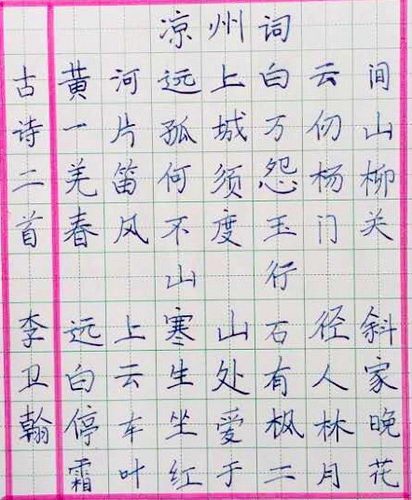 凉州词
黄河远上白云间
一片孤城万仞山
羌笛何须怨杨柳
春风不度玉门关
山行
远上寒山石径斜
白云生处有人家
停车坐爱枫林晚
霜叶红于二月花
古诗二首
李卫翰